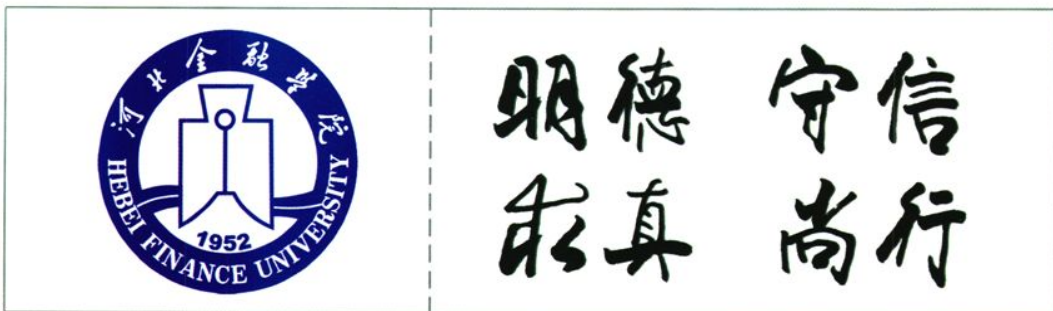 河北金融学院
1952
HEBEI FINANCE UNIVERSITY
明德 守信
求真 尚行